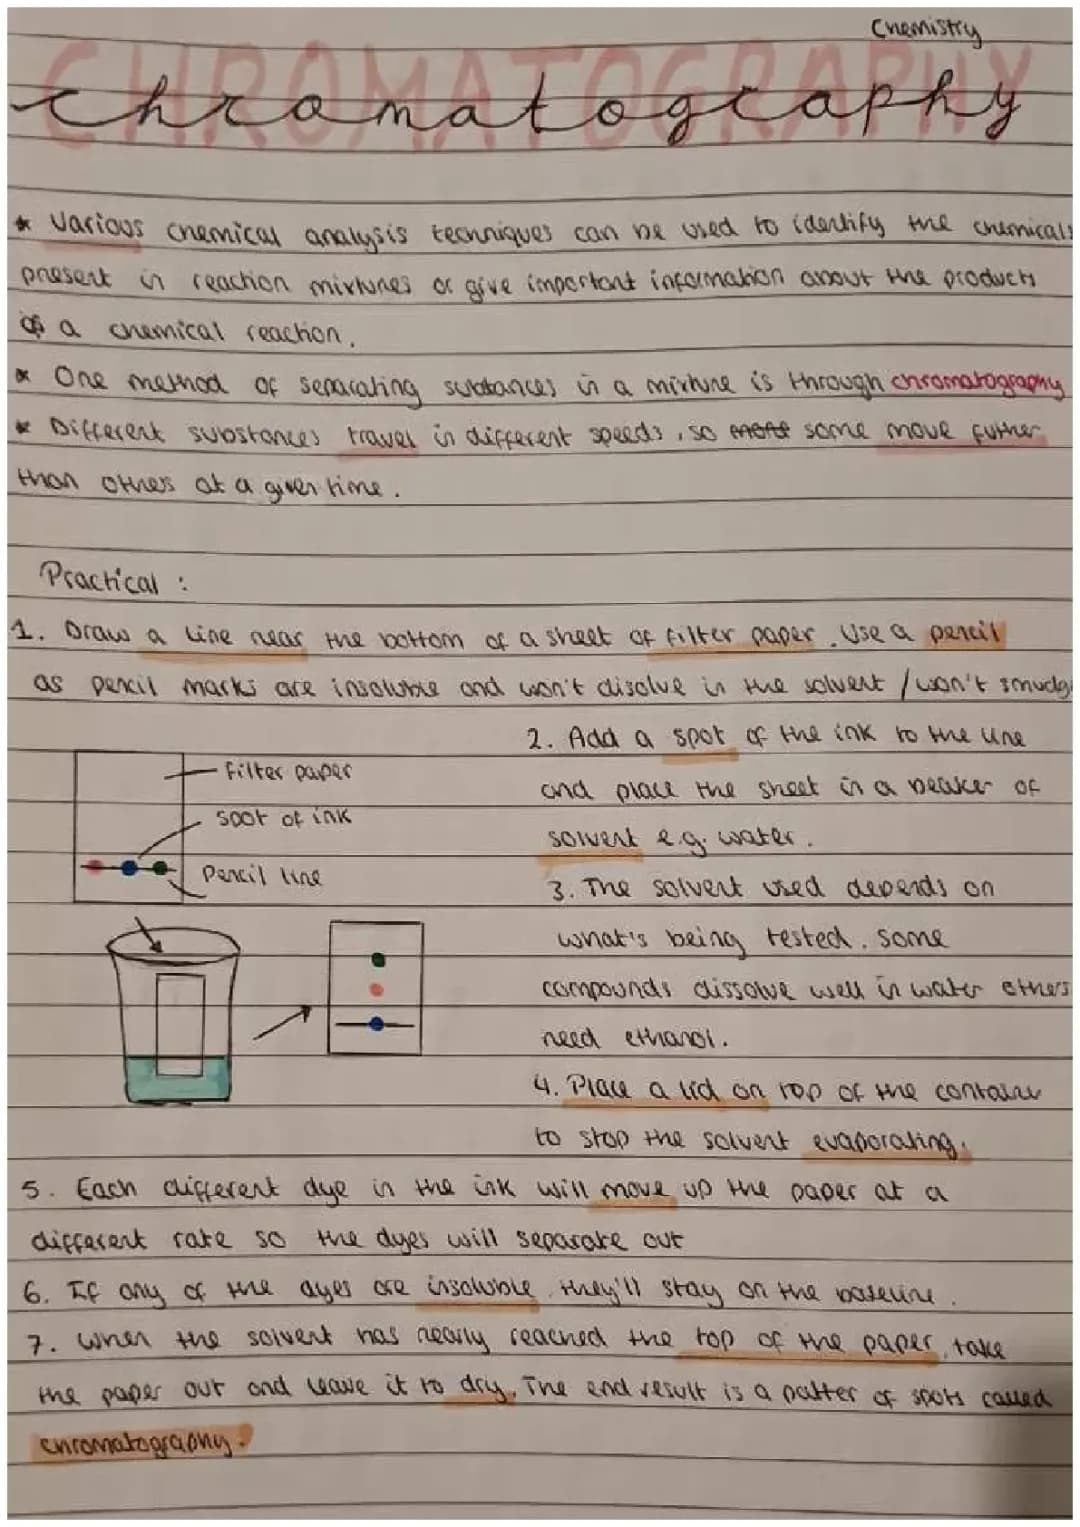 Chemistry
CHROMATOGRAPHY
chromatography
* Various chemical analysis techniques can be used to identify the chemicals
present in reaction mixtures or give important information about the products
of a chemical reaction.
* One method of separating substances in a mixture is through chromatography
* Different substances travel in different speeds, so some move futher
than others at a given time.
Practical :
1. Draw a line near the bottom of a sheet of filter paper. Use a pencil
as pencil marks are insoluble and won't disolve in the solvent / won't smudge
2. Add a spot of the ink to the line
and place the sheet in a beaker of
solvent e.g. water.
filter paper
spot of ink
Pencil line
3. The solvent used depends on
what's being tested. Some
compounds dissolve well in water others
need ethanol.
4. Place a lid on top of the container
to stop the solvent evaporating.
5. Each different dye in the ink will move up the paper at a
different rate so the dyes will separate out
6. If any of the dyes are insoluble, they'll stay on the baseline.
7. When the solvent has nearly reached the top of the paper, take
the paper out and leave it to dry. The end result is a patter of spots called
chromatography.